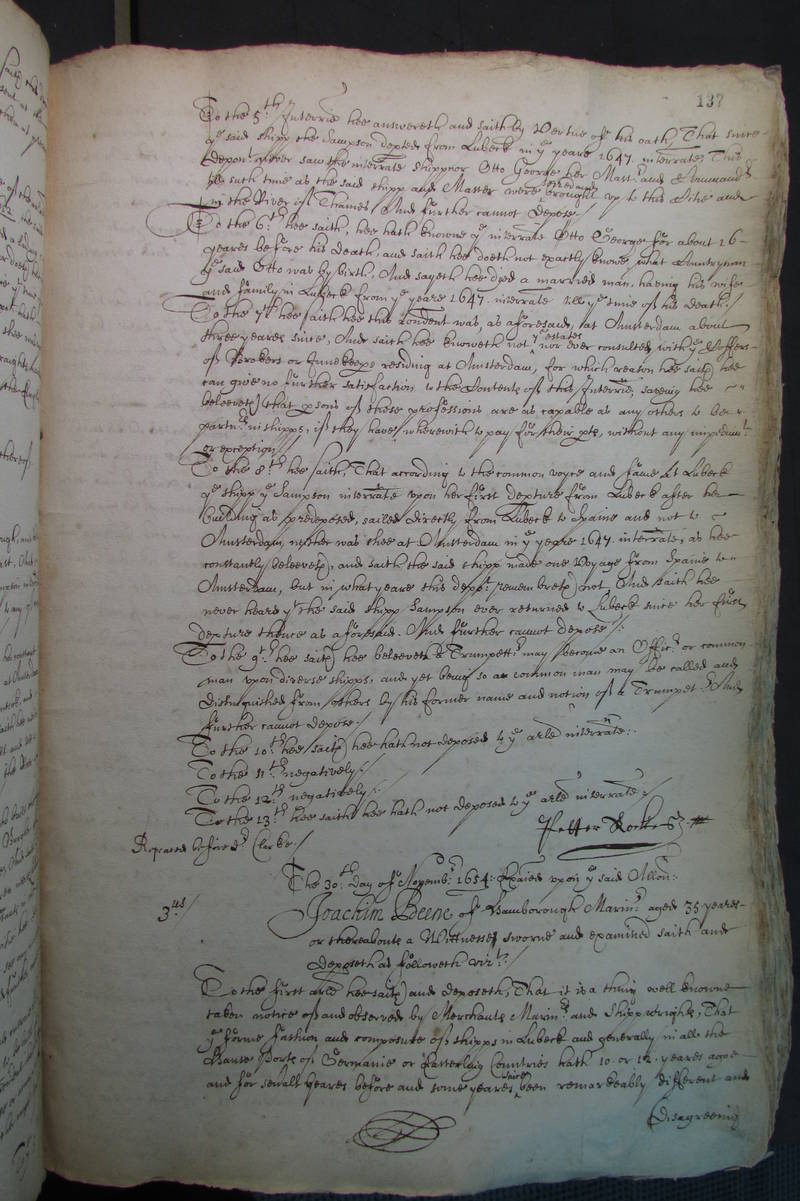 137
To the 5.th Interrie hee answereth and saith by Vertue of his oath, That since
ye said shipp the Sampson depted from Lubeck in ye yeare 1647. interrate, This
Depont never saw the interrate shippnor Otto George her Mastr and Commandr
till such time as the said shipp and Master were brought up to this Citie and
in the River of Thames, And further cannot depose.
To the 6.th hee saith, hee hath knowne ye interrate Otto George for about 16
yeares before his death, and saith hee doeth not exactly knowe what Countryman
ye said Otto was by birth, And sayeth hee dyed a married man, haveing his wife
and family in Lubeck from ye yeare 1647. interrate till ye time of his death./
To the 7th hee saith hee this rondent was, as aforesaid, at Amsterdam about
three yeares since, And saith hee knoweth not ye estates nor ever consulted with ye Coffers
of Brokers or Innekeeps residing at Amsterdam, for which reason hee saith hee
can give no further satisfaction to the Contents of this Interrie, saveing hee
beleeveth that psons of those professions are as capable as any others to bee
partnrs in shipps, if they have wherewith to pay for their pts, without any impedimt
or exception./
To the 8.th hee saith, That according to the common voyce and fame at Lubeck
ye shipp ye Sampson interrate upon her first depture from Lubeck after her
building as predeposed, sailed directly from Lubeck to Spaine and not to
Amsterdam, neither was shee at Amsterdam in ye yeare 1647. interrate, as hee
constantly beleeveth, and saith the said shipp made one Voyage from Spaine to
Amsterdam, but in what yeare this depot remembreth not, And saith hee
never heard yt the said shipp Sampson ever returned to Lubeck since her first
depture thence as aforesaid. And further cannot depose /:
To the 9.th hee saith hee beleeveth a Trumpettr may become an Officr or common
man upon diverse shipps, and yet being so a common man may be called and
distinguished from others by his former name and notion of a Trumpetr And
further cannot depose./
To the 10.th hee saith hee hath not deposed to ye arle interrate:
To the 11.th negatively/:
To the 12.th negatively/:
To the 13.th hee saith hee hath not deposed to ye arle interrate:/
Petter Rocke
Repeated before dr Clarke./
The 30.th Day of Novembr 1654: Exaied upon ye said Allon:
3.us/
Joachim Beene of Hamborough Marinr aged 35 yeares
or thereabouts a Wittnesse sworne and examined saith and
deposeth as followeth vizt./
To the first arle hee saith and deposeth, That it is a thing well knowne
taken notice of and observed by Merchants Marinrs and Shippwrights, That
ye forme fashion and composure of shipps in Lubeck and generally in all the
Hanse Ports of Germanie or Easterling Countries hath 10 or 12 yeares agoe
and for severall yeares before and some yeares since been remarkeably different and
disagreeing